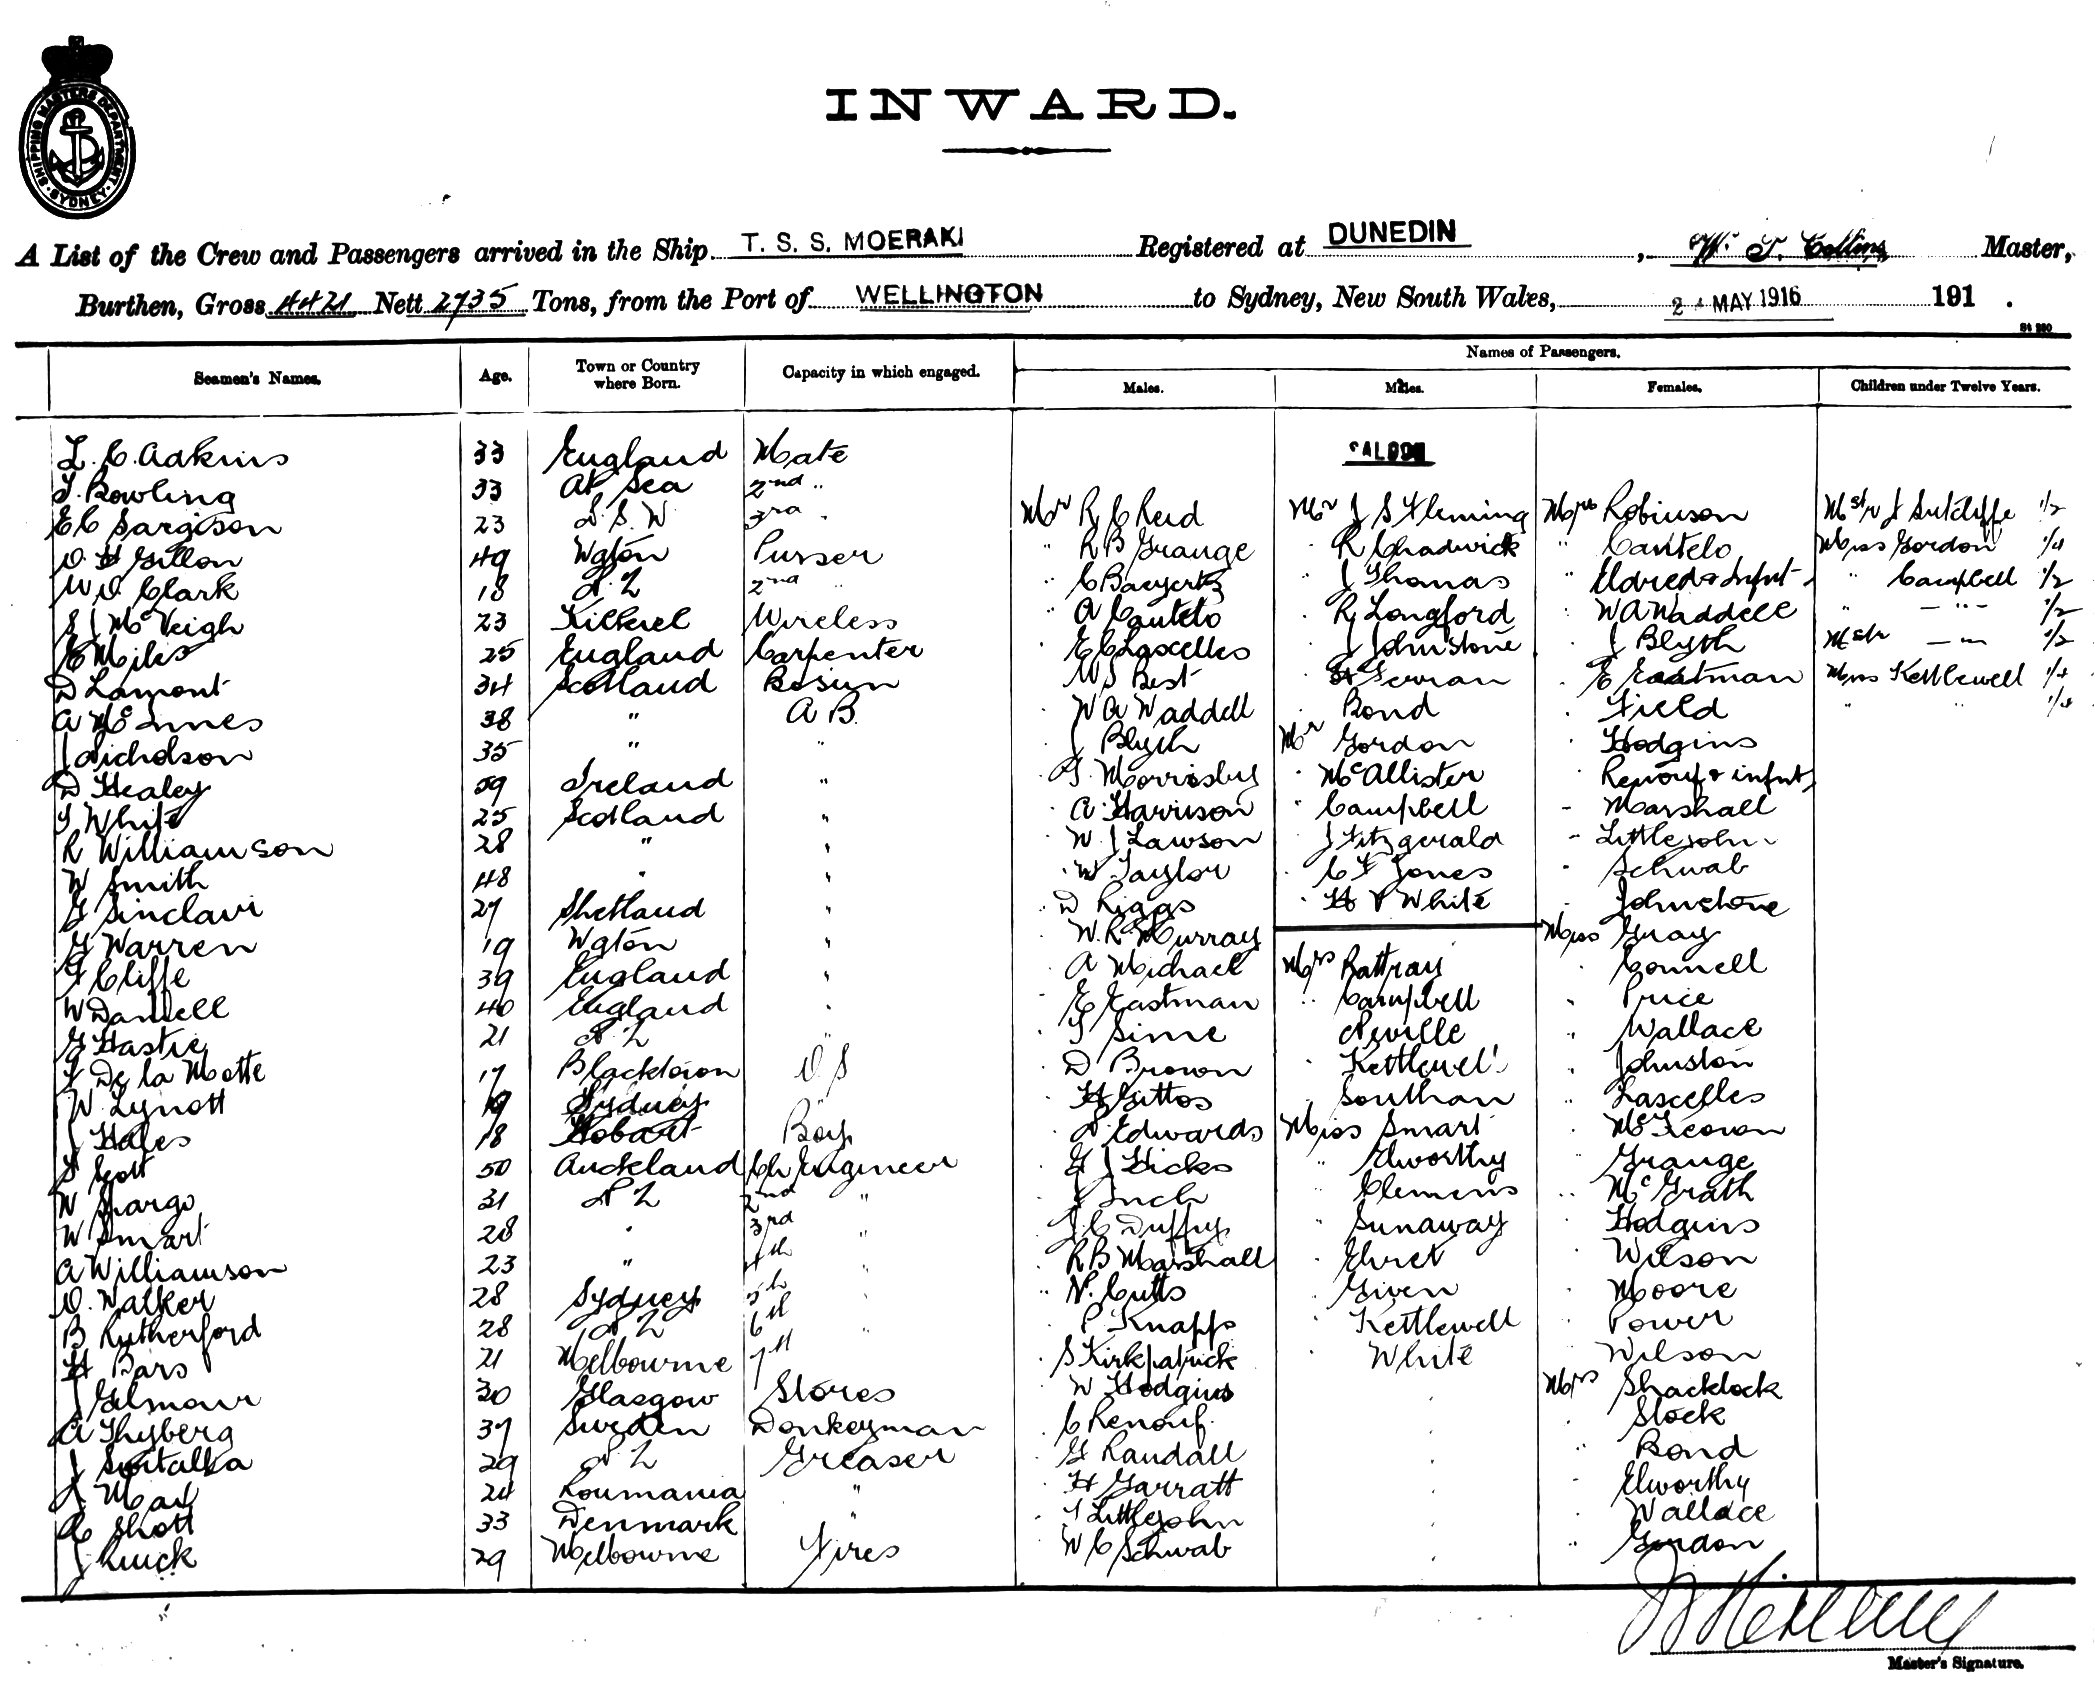 SHIPPING MASTERS DEPARTMENT · SYDNEY ·
INWARD.
A List of the Crew and Passengers arrived in the Ship T. S. S. MOERAKI Registered at DUNEDIN, W. J. Collins Master,
Burthen, Gross 4421 Nett 2735 Tons, from the Port of WELLINGTON to Sydney, New South Wales, 2 MAY 1916 191 .
Names of Passengers.
Seamen's Names. Age. Town or Country where Born. Capacity in which engaged. Males. Males. Females. Children under Twelve Years.
L. C. Adkins 33 England Mate SALOON
T. Bowling 33 At Sea 2nd "
E C Sargison 23 N. S. W 3rd " Mr R C Reid Mr J S Fleming Mrs Robinson Mstr J Sutcliffe 1/2
D H Gillon 49 Wgton Purser " R B Grange " R Chadwick " Cantelo Miss Gordon 1/4
W D Clark 18 N Z 2nd " " C Baeyertz " J Thomas " Eldred & Infnt " Campbell 1/2
S J McVeigh 23 Wireless " A Cantelo " R Longford " W A Waddell " — " — 1/2
E Miles 25 England Carpenter " E C Lascelles " J Johnstone " J Blyth Mstr — " — 1/2
D Lamont 34 Scotland Bosun W S Best " E Eastman Miss Kettlewell 1/4
A McInnes 38 " A B. " W A Waddell " Bond " Field " " 1/4
J Nicholson 35 " " J Blyth Mr Gordon " Hodgins
D Healey 59 Ireland " G Morrisby " McAllister Renouf & infnt
T White 25 Scotland " " A Harrison " Campbell " Marshall
R Williamson 28 " " " W J Lawson J Fitzgerald " Littlejohn
W Smith 48 " " " W Taylor " C F Jones " Schwab
G Sinclair 27 Shetland " " D Riggs " H V White " Johnstone
G Warren 19 Wgton " " W. R Murray Miss Gray
F Cliffe 39 England " " A Michael Mrs Rattray " Connell
W Daniell 40 England " " E Eastman " Campbell " Price
G Hastie 21 N Z " " T Sime Neville " Wallace
F De la Motte 17 Blacktown O S " D Brown " Kettlewell " Johnston
W Lynott 19 Sydney " " H Gittos " Southan " Lascelles
J Hales 18 Hobart Boy " N Edwards Miss Smart " McKeown
S Scott 50 Auckland Ch Engineer " G J Hicks " Elworthy " Grange
W Spargo 31 N Z 2nd " J Inch " Clemens " McGrath
W Smart 28 " 3rd J C Duffy " Sunaway " Hodgins
A Williamson 23 " 4th " " R B Marshall " Ehret " Wilson
D. Walker 28 Sydney 5th " " N. Cutts " Given " Moore
B Rutherford 28 N Z 6th " " P Knapps " Kettlewell " Power
H Bars 21 Melbourne 7th " S Kirkpatrick " White Wilson
J Gilmour 30 Glasgow Stores " W Hodgins Mrs Shacklock
A Thyberg 37 Sweden Donkeyman " C Renouf " Stock
J 29 N Z Greaser " G Randall " Bond
24 Roumania " " H Garratt " Elworthy
C Shott 33 Denmark " " T Littlejohn Wallace
J Quick 29 Melbourne Fires " W C Schwab " Gordon
Master's Signature.